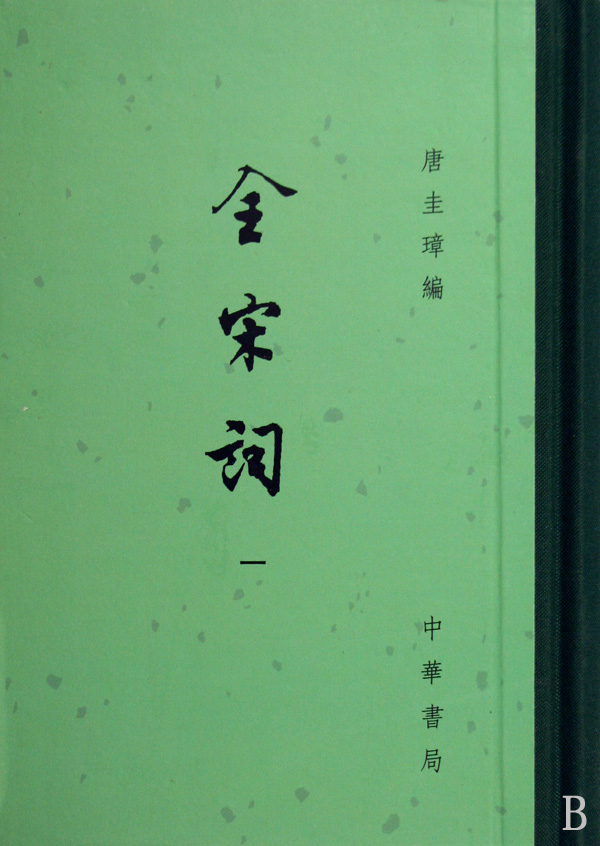 唐圭璋編
全宋詞
一
中華書局
B